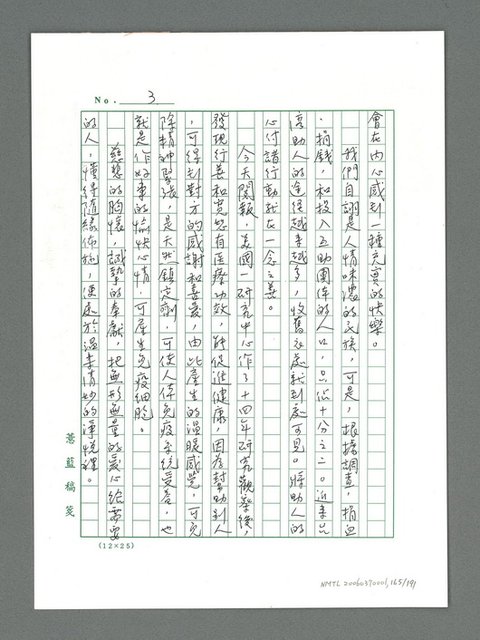 No. 3
會在內心感到一種充實的快樂。
我們自詡是人情味濃的民族，可是，根據調查，捐血
、捐錢，和投入互助團体的人口，只佔十分之二。近年品
助人的途徑越來越多，收舊衣處就到處可見。將助人的
心付諸行動就在一念之善。
今天閱報，美國一研究中心作了十四年研究觀察後，
發現行善和寬恕有医療功效，能促進健康，因為幫助別人
，可得到對方的感謝和善意，由此產生的溫暖感覺，可免
除精神緊張，是天然鎮定劑，可使人体免疫系統受益，也
就是作好事的愉快心情，可產生免疫細胞。
慈悲的胸懷，誠摯的奉獻，把無形無量的愛心給需要
的人，懂得隨緣佈施，便處於溫柔情妙的淨悅裡。
蒼藍稿箋
(12×25)
NMTL 20060370001, 165/191